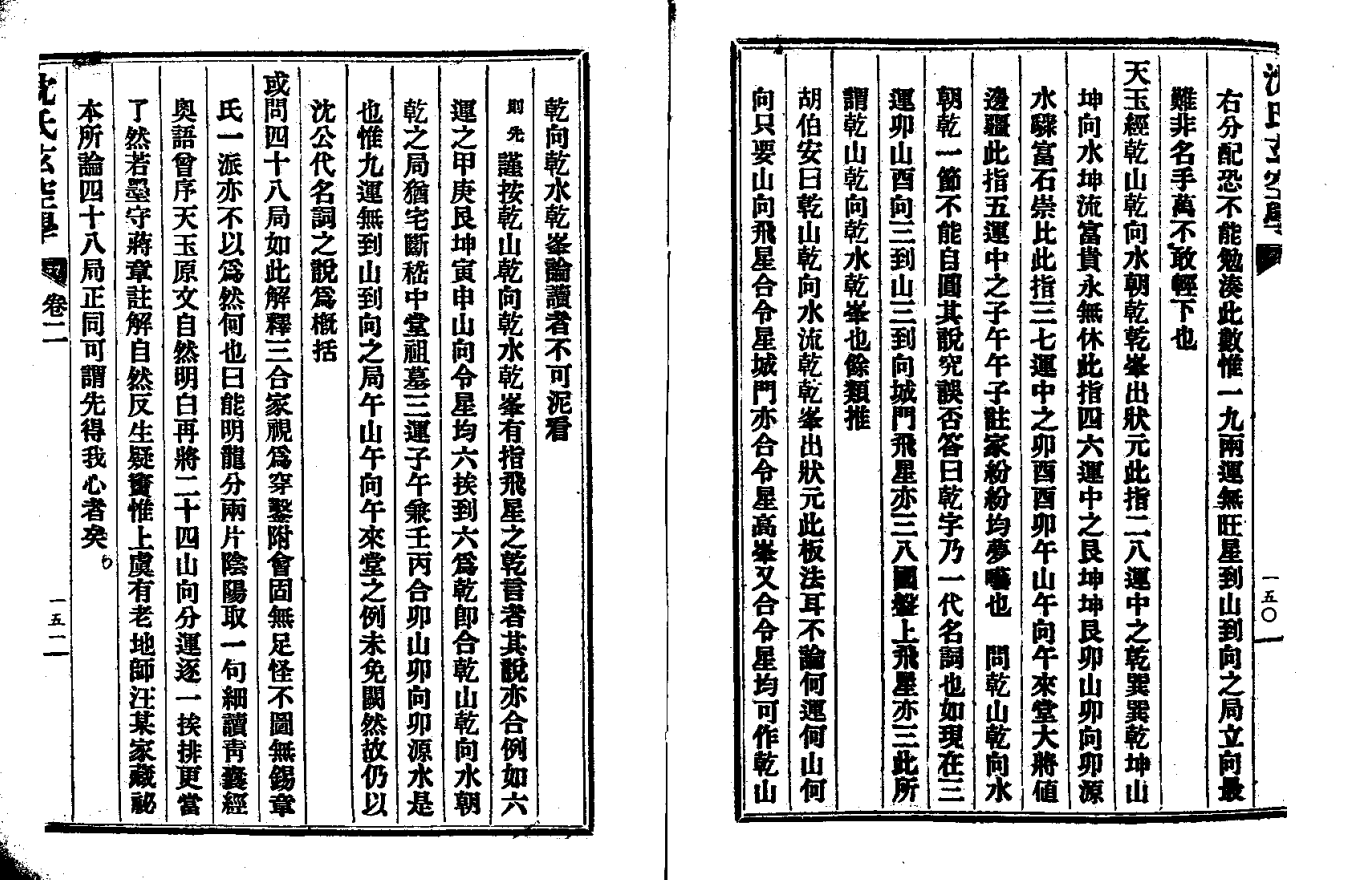 沈氏玄空學
一五〇
右分配恐不能勉湊此數惟一九兩運無旺星到山到向之局立向最
難非名手萬不敢輕下也
天玉經乾山乾向水朝乾乾峯出狀元此指二八運中之乾巽巽乾坤山
坤向水坤流富貴永無休此指四六運中之艮坤坤艮卯山卯向卯源
水驟富石崇比此指三七運中之卯酉酉卯午山午向午來堂大將值
邊疆此指五運中之子午午子註家紛紛均夢囈也　問乾山乾向水
朝乾一節不能自圓其說究誤否答曰乾字乃一代名詞也如現在三
運卯山酉向三到山三到向城門飛星亦三八國盤上飛星亦三此所
謂乾山乾向乾水乾峯也餘類推
胡伯安曰乾山乾向水流乾乾峯出狀元此板法耳不論何運何山何
向只要山向飛星合令星城門亦合令星高峯又合令星均可作乾山
乾向乾水乾峯論讀者不可泥看
則先謹按乾山乾向乾水乾峯有指飛星之乾言者其說亦合例如六
運之甲庚艮坤寅申山向令星均六挨到六爲乾卽合乾山乾向水朝
乾之局猶宅斷嵇中堂祖墓三運子午兼壬丙合卯山卯向卯源水是
也惟九運無到山到向之局午山午向午來堂之例未免闕然故仍以
沈公代名詞之說爲概括
或問四十八局如此解釋三合家視爲穿鑿附會固無足怪不圖無錫章
氏一派亦不以爲然何也曰能明龍分兩片陰陽取一句細讀靑囊經
奥語曾序天玉原文自然明白再將二十四山向分運逐一挨排更當
了然若墨守蔣章註解自然反生疑竇惟上虞有老地師汪某家藏祕
本所論四十八局正同可謂先得我心者矣
沈氏玄空學
卷二
一五一